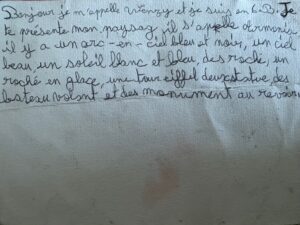 Bonjour je m'appelle Wenzy et je suis en 6
Je
te présente mon paysag, il s'appelle
il y a un arc-en-ciel bleu et noir, un ciel
beau un soleil blanc et bleu, des roché, un
roché en glace, une tour eiffel deux statue des
bateau volant et des monument au revoir